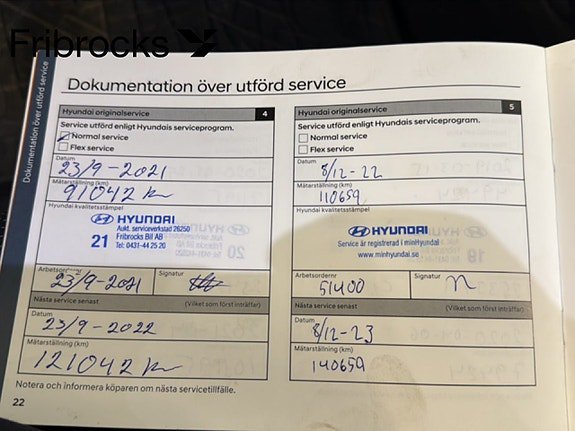 Fribrocks
Dokumentation över utförd service
Dokumentation över utförd service
Hyundai originalservice 4
Service utförd enligt Hyundais serviceprogram.
Normal service
Flex service
Datum
23/9-2021
Mätarställning (km)
91042 km
Hyundai kvalitetsstämpel
HYUNDAI
Aukt. serviceverkstad 26250
21 Fribrocks Bil AB
Tel: 0431-44 25 20
Arbetsordernr Signatur
23/9-2021
Nästa service senast (Vilket som först inträffar)
Datum
23/9-2022
Mätarställning (km)
121042 km
Notera och informera köparen om nästa servicetillfälle.
22
Hyundai originalservice 5
Service utförd enligt Hyundais serviceprogram.
Normal service
Flex service
Datum
8/12-22
Mätarställning (km)
110659
Hyundai kvalitetsstämpel
HYUNDAI
Service är registrerad i minHyundai
www.minhyundai.se
Arbetsordernr Signatur
51400
Nästa service senast (Vilket som först inträffar)
Datum
8/12-23
Mätarställning (km)
140659